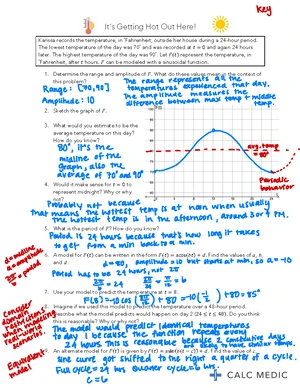 key
It's Getting Hot Out Here!
Karissa records the temperature, in °Fahrenheit, outside her house during a 24-hour period.
The lowest temperature of the day was 70° and was recorded at t = 0 and again 24 hours
later. The highest temperature of the day was 90°. Let F(t) represent the temperature, in
°Fahrenheit, after t hours. F can be modeled with a sinusoidal function.
1. Determine the range and amplitude of F. What do these values mean in the context of
this problem?
Range: [70,90]
Amplitude: 10
The range represents all the
temperatures experienced that day.
The amplitude measures the
difference between max temp + middle
temp.
2. Sketch the graph of F.
3. What would you estimate to be the
average temperature on this day?
How do you know?
80°, it's the
midline of the
graph, also the
average of 70° and 90°
avg. temp
= 80°
Periodic
behavior
4. Would it make sense for t = 0 to
represent midnight? Why or why
not?
Probably not because
that means the hottest temp is at noon when usually
the hottest temp is in the afternoon, around 3 or 4 PM.
5. What is the period of F? How do you know?
Period is 24 hours because that's how long it takes
to get from a min back to a min.
d = midline
a = amplitude
2π/b = period
6. A model for F(t) can be written in the form F(t) = a cos(bt) + d. Find the values of a, b,
and d.
d = 80, amplitude = 10 but starts at min, so a = -10
Period has to be 24 hours, not 2π
2π/b = 24
2π/24 = π/12 = b
7. Use your model to predict the temperature at t = 8.
F(8) = -10 cos(8π/12) + 80 = -10(-1/2) + 80 = 85°
8. Imagine if we used this model to predict the temperature over a 48-hour period.
Describe what the model would predict happen on day 2 (24 ≤ t ≤ 48). Do you think
this is reasonable? Why or why not?
The model would predict identical temperatures
to day 1 because the function repeats every
24 hours. This is reasonable because 2 consecutive days
are likely to have similar temps.
Consider
domain
restrictions/
understanding
real world
scenarios!
9. An alternate model for F(t) is given by F(t) = a sin(b(t − c)) + d. Find the value of c.
Equivalent
model
sine curve got shifted to the right a quarter of a cycle.
Full cycle = 24 hrs Quarter cycle = 6 hrs
c = 6
CALC MEDIC